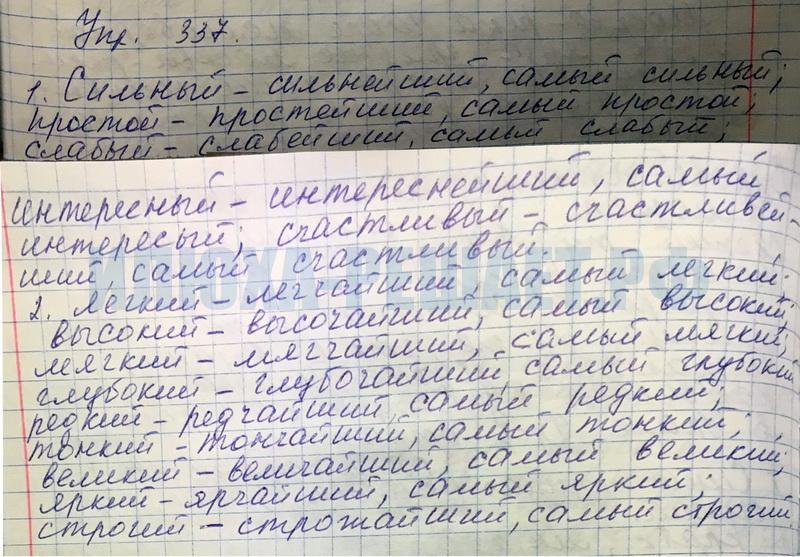 Упр. 337.
1. Сильный – сильнейший, самый сильный;
простой – простейший, самый простой;
слабый – слабейший, самый слабый;
интересный – интереснейший, самый
интересый; счастливый – счастливей-
ший, самый счастливый.
2. Легкий – легчайший, самый легкий;
высокий – высочайший, самый высокий;
мягкий – мягчайший, самый мягкий;
глубокий – глубочайший, самый глубокий
редкий – редчайший, самый редкий;
тонкий – тончайший, самый тонкий;
великий – величайший, самый великий;
яркий – ярчайший, самый яркий;
строгий – строжайший, самый строгий.